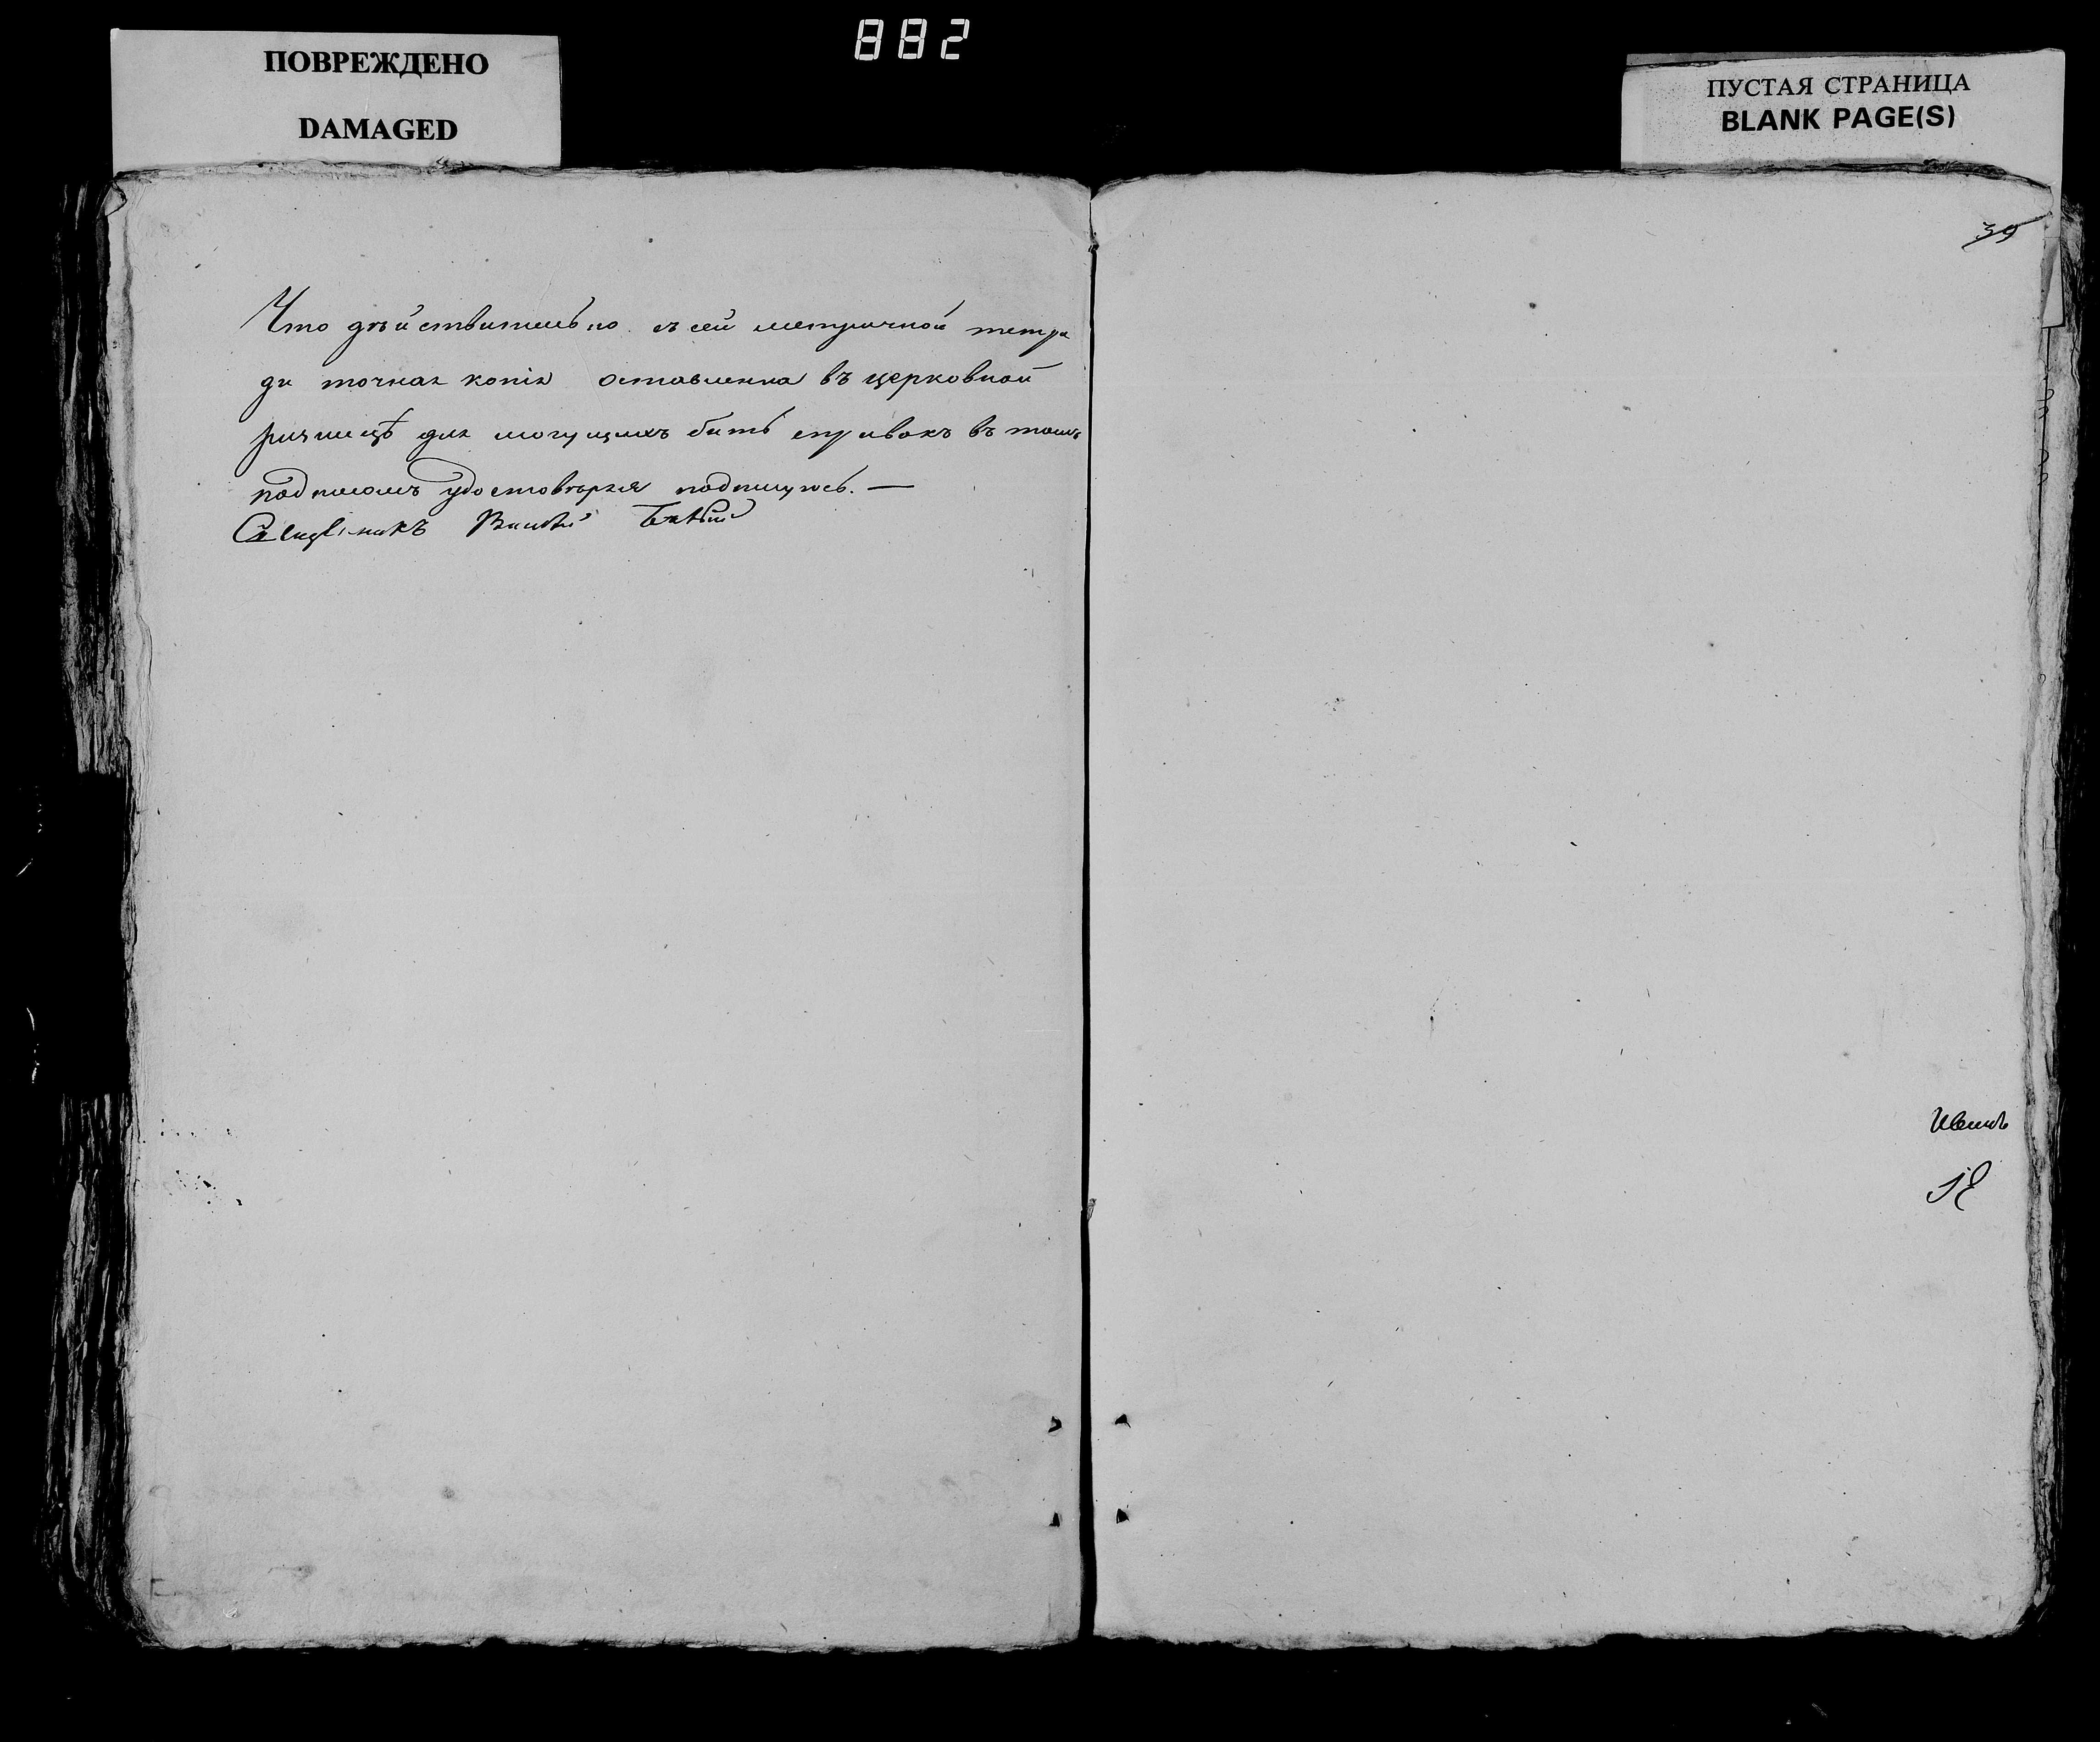 882
ПОВРЕЖДЕНО
DAMAGED
ПУСТАЯ СТРАНИЦА
BLANK PAGE(S)
39
Что дѣйствительно съ сей метричной тетра
ди точная копія оставленна въ церковной
ризницѣ для могущихъ быть справокъ въ томъ
подписомъ удостовѣряя подпишусь. —
Священникъ